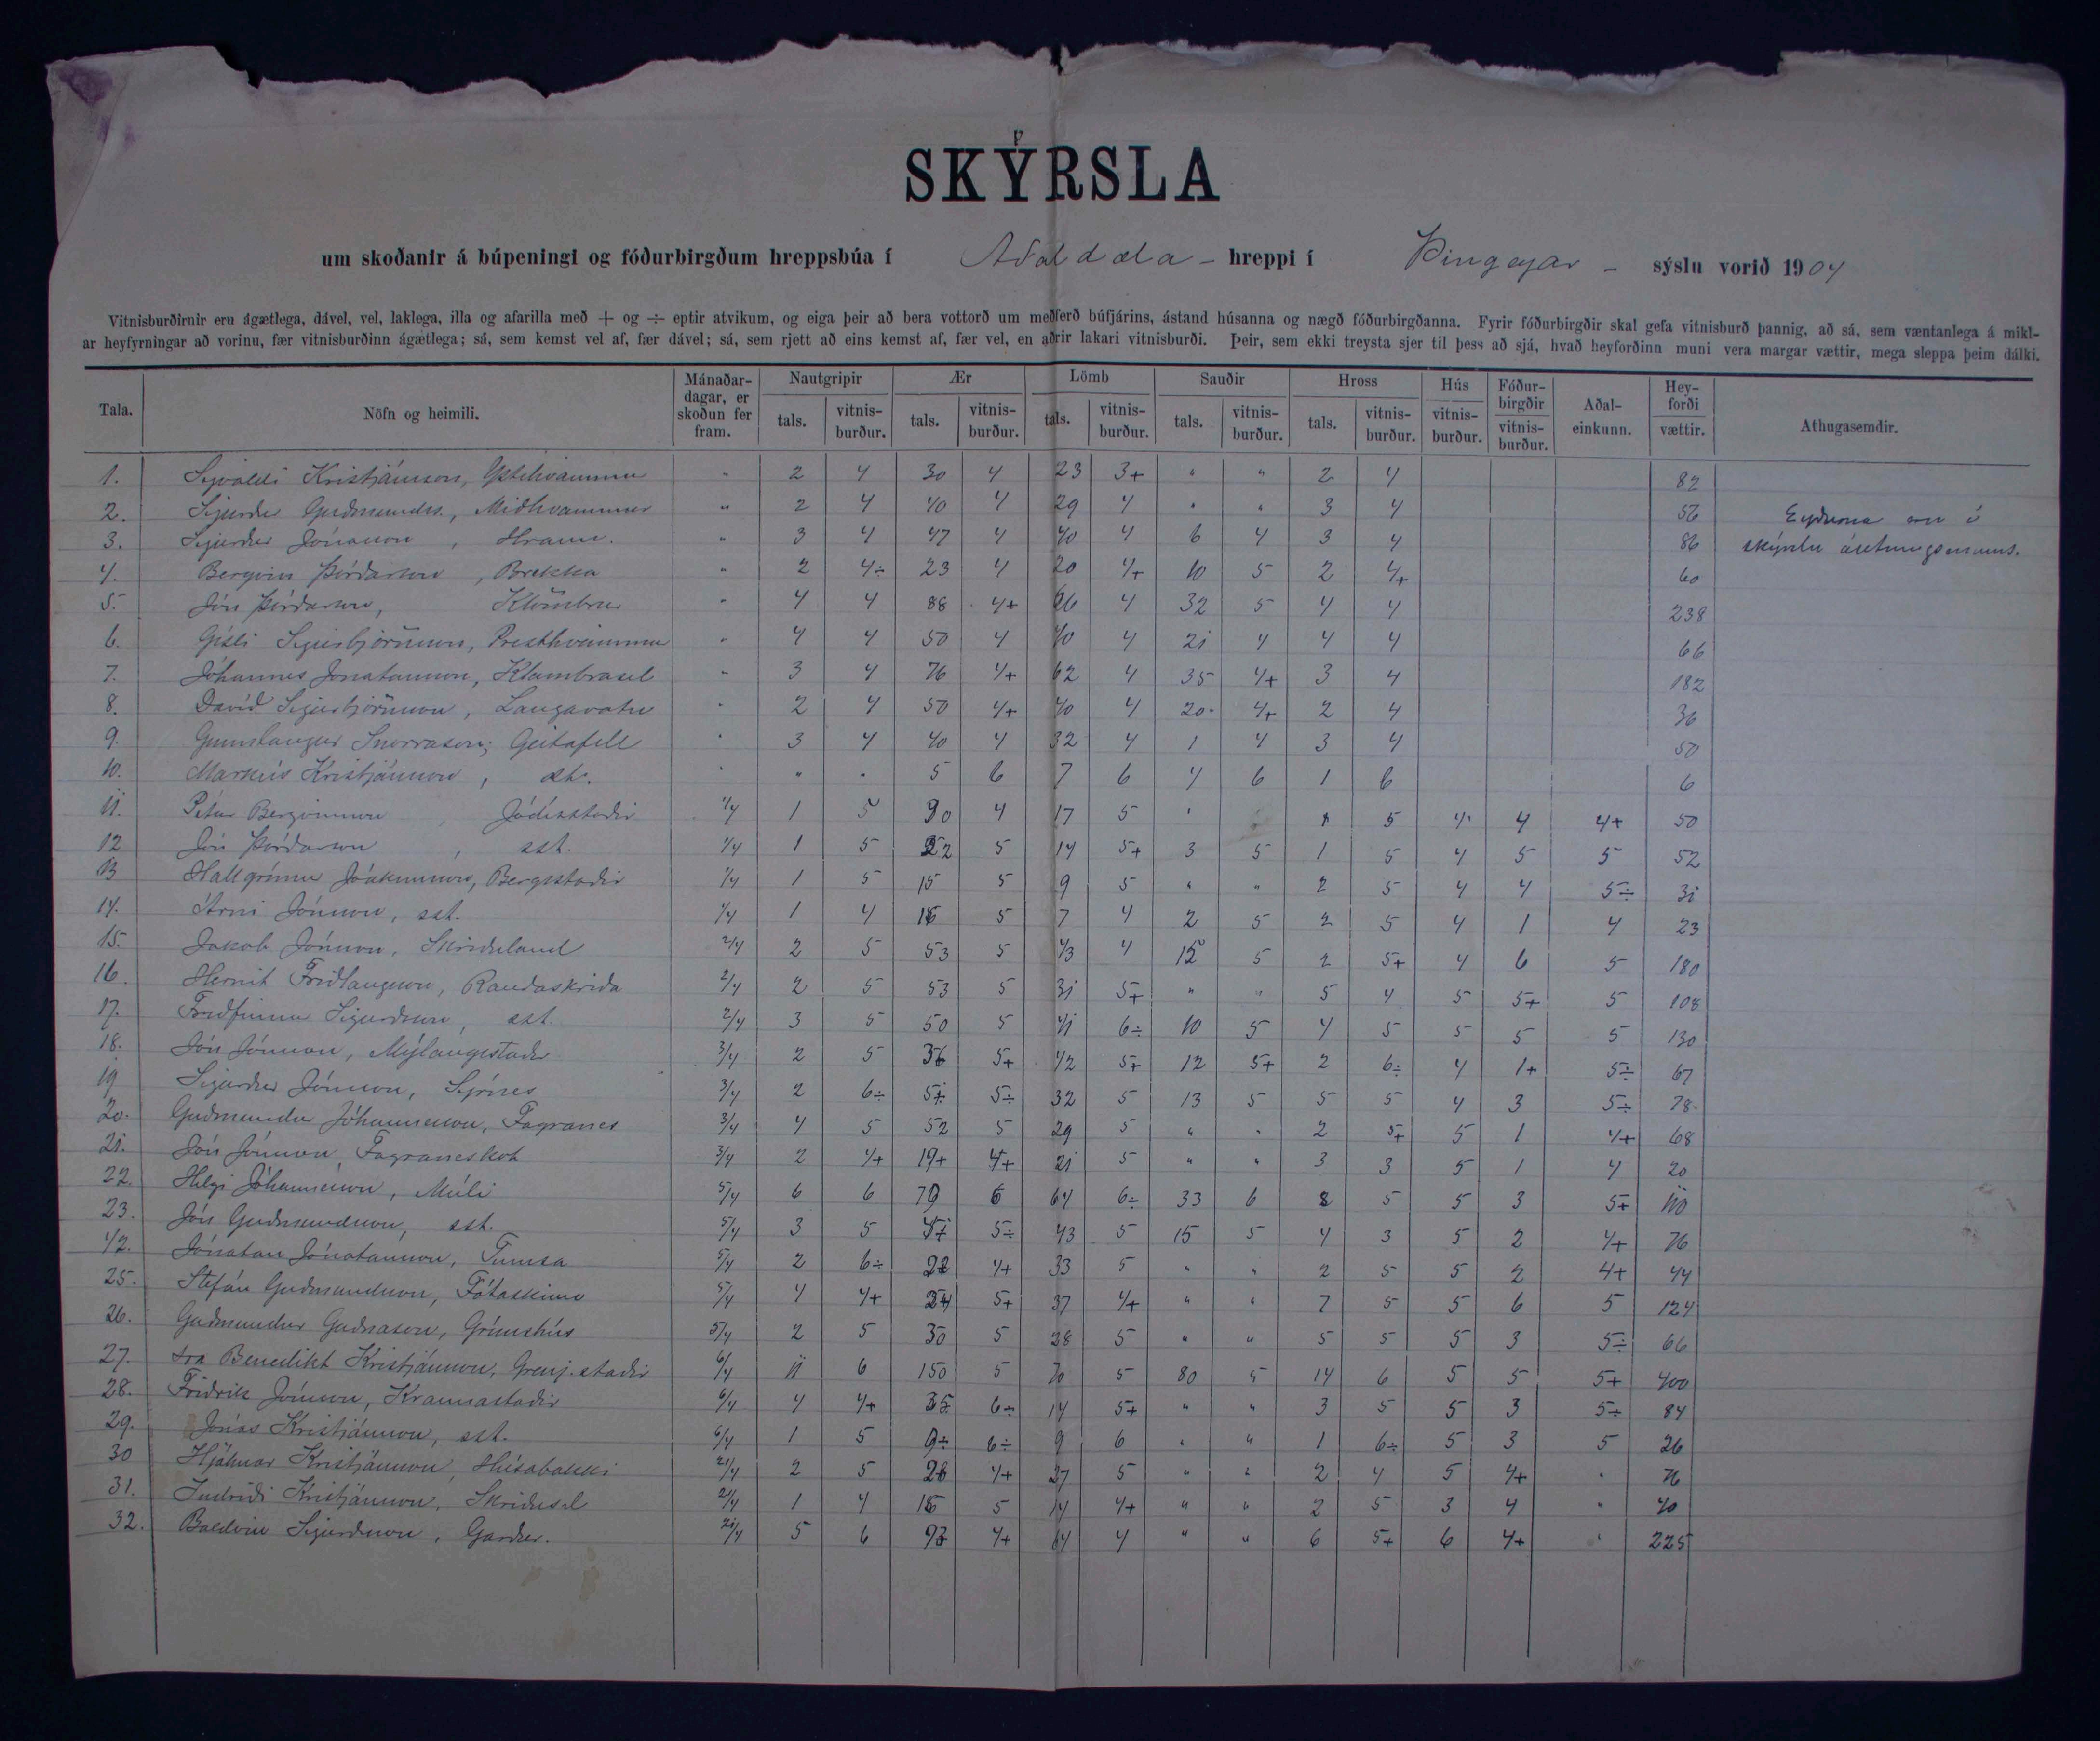 SKÝRSLA
um skoðanir á búpeningi og fóðurbirgðum hreppsbúa í Aðaldæla - hreppi í Þingeyjar - sýslu vorið 1904
Vitnisburðirnir eru ágætlega, dável, vel, laklega, illa og afarilla með + og ÷ eptir atvikum, og eiga þeir að bera vottorð um meðferð búfjárins, ástand húsanna og nægð fóðurbirgðanna. Fyrir fóðurbirgðir skal gefa vitnisburð þannig, að sá, sem væntanlega á mikl-
ar heyfyrningar að vorinu, fær vitnisburðinn ágætlega; sá, sem kemst vel af, fær dável; sá, sem rjett að eins kemst af, fær vel, en aðrir lakari vitnisburði. Þeir, sem ekki treysta sjer til þess að sjá, hvað heyforðinn muni vera margar vættir, mega sleppa þeim dálki.
Tala. Nöfn og heimili. Mánaðar-dagar, er skoðun fer fram. Nautgripir Ær Lömb Sauðir Hross Hús Fóður-birgðir Aðal-einkunn. Hey-forði vættir. Athugasemdir.
tals. vitnis-burður. tals. vitnis-burður. tals. vitnis-burður. tals. vitnis-burður. tals. vitnis-burður. vitnis-burður. vitnis-burður.
1. Kristjánsson, " 2 4 30 4 23 3+ " " 2 4 82
2. Sigurður Guðmundss., Miðhvammur " 2 4 40 4 29 4 " " 3 4 56 Eyðurnar eru í
3. Sigurður Jónasson, Hraun. " 3 4 47 4 40 4 6 4 3 4 86 skýrslu ásetningsmanns.
4. Bergvin Þórðarson, Brekka " 2 4÷ 23 4 20 4+ 10 5 2 4+ 60
5. Jón Þórðarson, Klömbrur " 4 4 88 4+ 4 32 5 4 4 238
6. Gísli Sigurbjörnsson, Presthvammur " 4 4 50 4 40 4 21 4 4 4 66
7. Jóhannes Jónatansson, Klambrasel " 3 4 76 4+ 62 4 35 4+ 3 4 182
8. Davíð Sigurbjörnsson, Langavatn " 2 4 50 4+ 40 4 20 4+ 2 4 36
9. Gunnlaugur Snorrason, Geitafell " 3 4 40 4 32 4 1 4 3 4 50
10. Markús Kristjánsson, sst. " " " 5 6 7 6 4 6 1 6 6
11. Pétur Bergvinsson, Jódísstaðir 1/4 1 5 4 17 5 " 5 4 4 4+ 50
12 Jón Þórðarson, sst. 1/4 1 5 5 14 5+ 3 5 1 5 4 5 5 52
13 Hallgrímur Jóakimsson, Bergsstaðir 1/4 1 5 15 5 9 5 " " 2 5 4 4 5÷ 31
14. Árni Jónsson, sst. 1/4 1 4 5 7 4 2 5 2 5 4 1 4 23
15. Jakob Jónsson, Skriðuland 2/4 2 5 53 5 43 4 12 5 2 5+ 4 6 5 180
16. Hernit Friðlaugsson, Rauðaskriða 2/4 2 5 53 5 31 5+ " " 5 4 5 5+ 5 108
17. Friðfinnur Sigurðsson, sst. 2/4 3 5 50 5 41 6÷ 10 5 4 5 5 5 5 130
18. Jón Jónsson, Mýlaugsstaðir 3/4 2 5 36 5+ 42 5+ 12 5+ 2 6÷ 4 1+ 5÷ 67
19 Sigurður Jónsson, Sýrnes 3/4 2 6÷ 5÷ 32 5 13 5 5 5 4 3 5÷ 78
20. Guðmundur Jóhannesson, Fagranes 3/4 4 5 52 5 29 5 " " 2 5+ 5 1 4+ 68
21. Jón Jónsson, Fagraneskot 3/4 2 4+ 4+ 21 5 " " 3 3 5 1 4 20
22. Helgi Jóhannesson, Múli 5/4 6 6 79 6 64 6÷ 33 6 8 5 5 3 5+ 110
23. Jón Guðmundsson, sst. 5/4 3 5 5÷ 43 5 15 5 4 3 5 2 4+ 76
42. Jónatan Jónatansson, Tumsa 5/4 2 6÷ 4+ 33 5 " " 2 5 5 2 4+ 44
25. Stefán Guðmundsson, Fótaskinn 5/4 4 4+ 5+ 37 4+ " " 7 5 5 6 5 124
26. Guðmundur Guðnason, Grímshús 5/4 2 5 30 5 28 5 " " 5 5 5 3 5÷ 66
27. sra Benedikt Kristjánsson, Grenj.staðir 6/4 11 6 150 5 70 5 80 5 14 6 5 5 5+ 400
28. Friðrik Jónsson, Kraunastaðir 6/4 4 4+ 6÷ 14 5+ " " 3 5 5 3 5÷ 84
29. Jónas Kristjánsson, sst. 6/4 1 5 6÷ 9 6 " " 1 6÷ 5 3 5 26
30 Hjálmar Kristjánsson, Húsabakki 21/4 2 5 4+ 27 5 " " 2 4 5 4+ " 76
31. Indriði Kristjánsson, Skriðusel 21/4 1 4 5 14 4+ " " 2 5 3 4 " 40
32. Baldvin Sigurðsson, Garður. 21/4 5 6 4+ 64 4 " " 6 5+ 6 4+ " 225